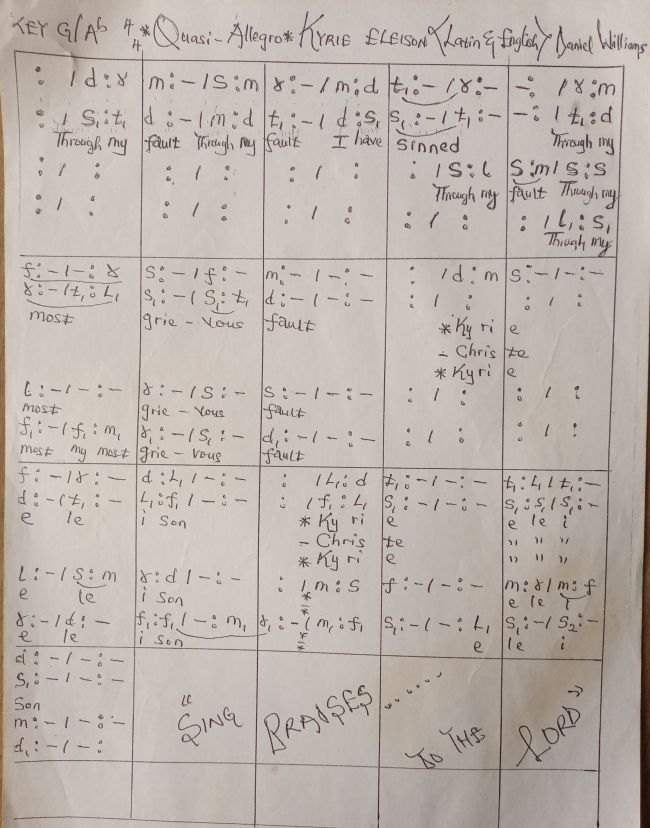 KEY G/Ab 4/4 *Quasi-Allegro* KYRIE ELEISON <Latin & English> Daniel Williams
: / d : r | m : - / s : m | r : - / m : d | t₁ : - / r : - | - : / r : m
: / s₁ : t₁ | d : - / m : d | t₁ : - / d : s₁ | s₁ : - / t₁ : - | - : / t₁ : d
Through my fault Through my fault I have sinned Through my
: / : | : / : | : / : | : / s : l | s : m / s : s
Through my fault Through my
: / : | : / : | : / : | : / : | : / l₁ : s₁
Through my
f : - / - : r | s : - / f : - | m : - / - : - | : / d : m | s : - / - : -
r : - / t₁ : l₁ | s₁ : - / s₁ : t₁ | d : - / - : - | : / : | : / :
most grie - vous fault *Ky ri e
- Chris te
* Ky ri e
l : - / - : - | r : - / s : - | s : - / - : - | : / : | : / :
most grie - vous fault
f₁ : - / f₁ : m₁ | r₁ : - / s₁ : - | d₁ : - / - : - | : / : | : / :
most my most grie - vous fault
f : - / r : - | d : l₁ / - : - | : / l₁ : d | t₁ : - / - : - | t₁ : l₁ / t₁ : -
d : - / t₁ : - | l₁ : f₁ / - : - | : / f₁ : l₁ | s₁ : - / - : - | s₁ : s₁ / s₁ : -
e le i son * Ky ri e e le i
- Chris te " " "
* Ky ri e " " "
l : - / s : m | r : d / - : - | : / m : s | f : - / - : - | m : r / m : f
e le i son * - * e le i
r : - / d : - | f₁ : f₁ / - : m₁ | r₁ : - / m₁ : f₁ | s₁ : - / - : l₁ | s₁ : - / s₂ : -
e le i son * - * e le i
d : - / - : -
s₁ : - / - : -
Son
m : - / - : -
d₁ : - / - :
"SING PRAISES ...... TO THE LORD"